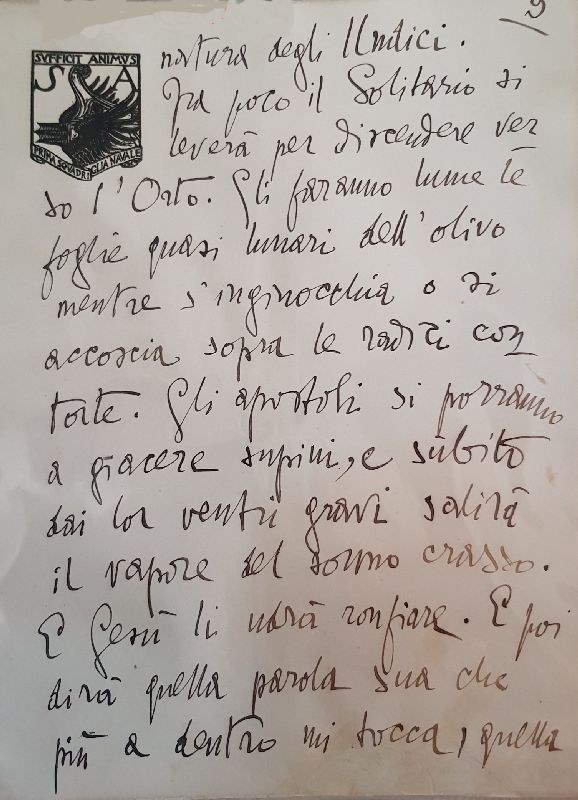 9
SVFFICIT ANIMVS
S A
PRIMA SQVADRIGLIA NAVALE
natura degli Undici.
Fra poco il Solitario si
leverà per discendere ver
so l'Orto. Gli faranno lume le
foglie quasi lunari dell'olivo
mentre s'inginocchia o si
accoscia sopra le radici con
torte. Gli apostoli si porranno
a giacere supini, e sùbito
dai lor ventri gravi salirà
il vapore del sonno crasso.
E Gesù li udrà ronfiare. E poi
dirà quella parola sua che
più a dentro mi tocca, quella